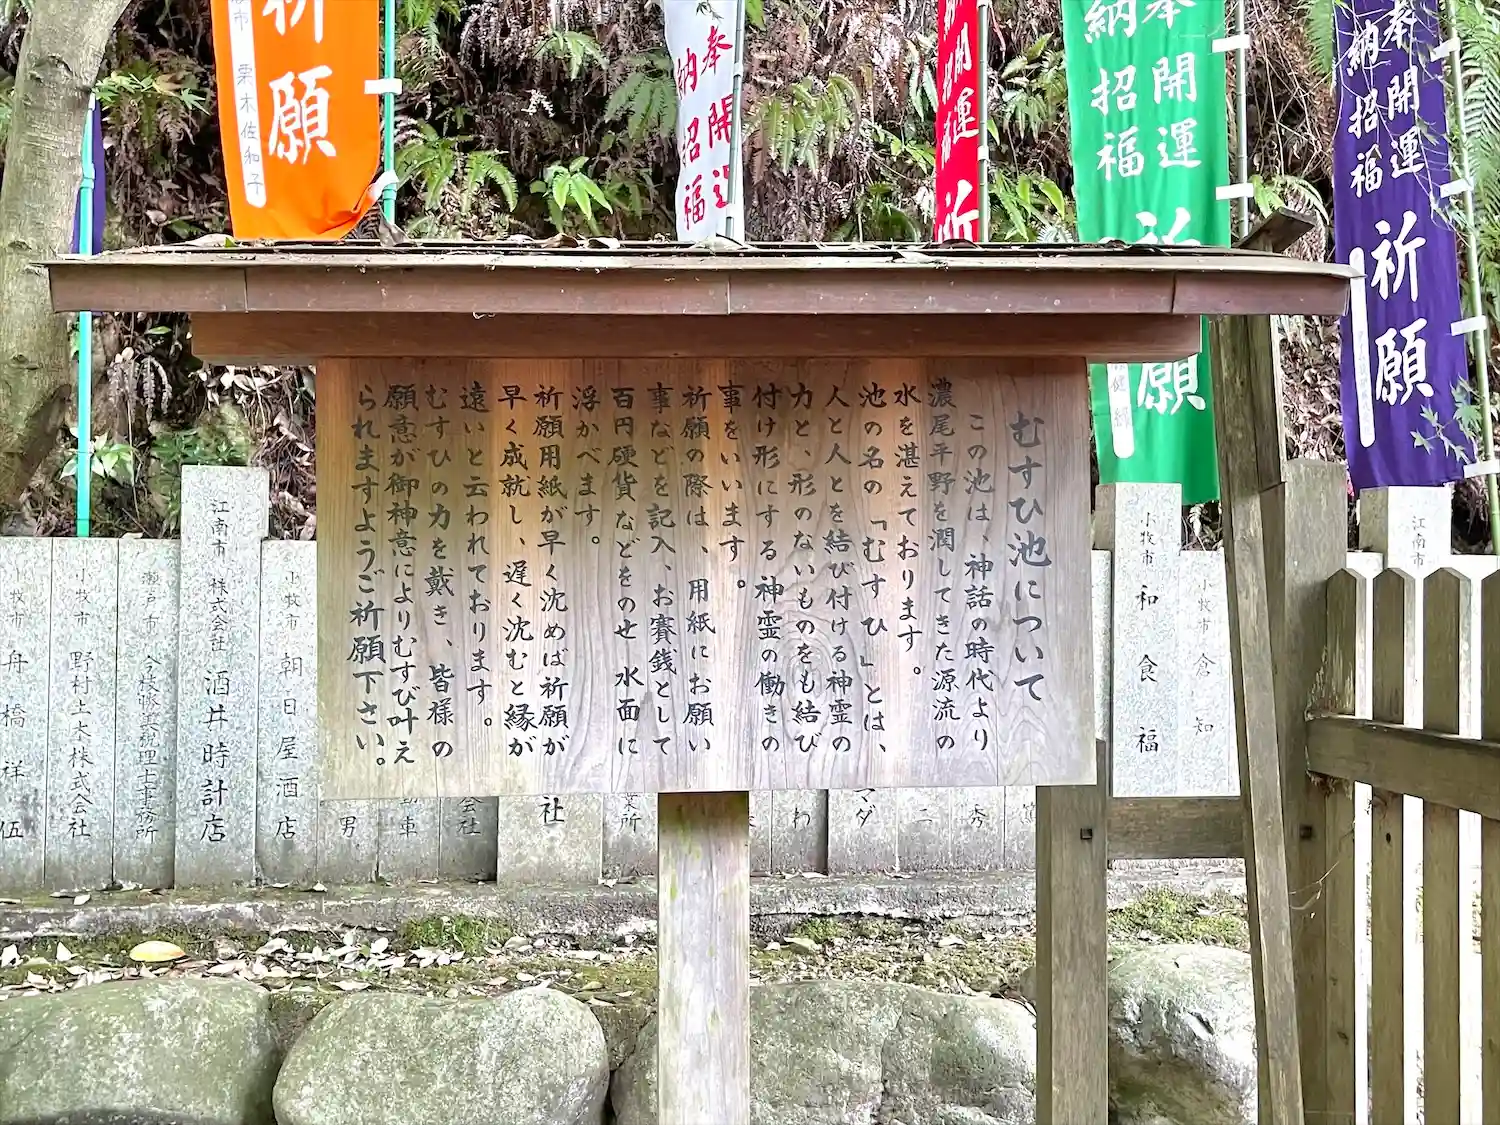 むすひ池について
この池は、神話の時代より
濃尾平野を潤してきた源流の
水を湛えております。
池の名の「むすひ」とは、
人と人とを結び付ける神霊の
力と、形のないものをも結び
付け形にする神霊の働きの
事をいいます。
祈願の際は、用紙にお願い
事などを記入、お賽銭として
百円硬貨などをのせ水面に
浮かべます。
祈願用紙が早く沈めば祈願が
早く成就し、遅く沈むと縁が
遠いと云われております。
むすひの力を戴き、皆様の
願意が御神意によりむすび叶え
られますようご祈願下さい。
奉納
開運招福
祈願
奉納
開運招福
祈願
開運招福
祈
奉納
開運招福
祈願
栗木佐和子
江南市
小牧市 和食 福
小牧市 倉知
小牧市 朝日屋酒店
江南市 株式会社 酒井時計店
瀬戸市 今枝 美税理士事務所
小牧市 野村土木株式会社
小牧市 舟橋祥伍
男
動車
会社
社
業所
わ
マダ
二
秀